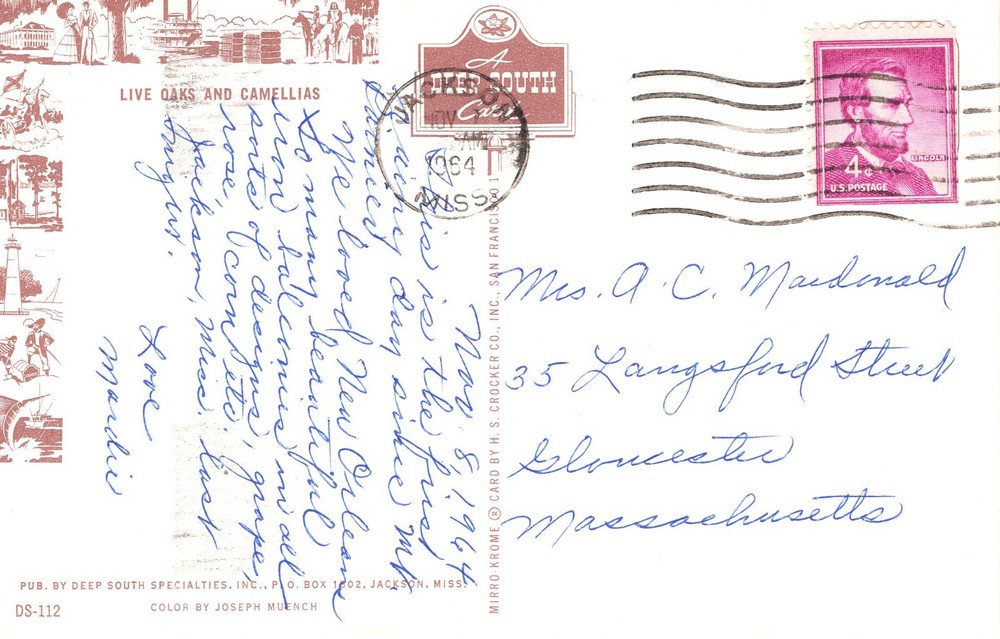 LIVE OAKS AND CAMELLIAS
A
DEEP SOUTH
Card
JACKSON
NOV
AM
1964
MISS
LINCOLN
4¢
U.S. POSTAGE
Nov. 8, 1964
This is the first
rainy day since Mt.
Vernon
We loved New Orleans
So many beautiful
iron balconies in all
sorts of designs, grape,
rose, corn, etc.
Jackson, Miss. last
night.
Love
Mardie
Mrs. A. C. Macdonald
35 Langsford Street
Gloucester
Massachusetts
MIRRO-KROME ® CARD BY H. S. CROCKER CO., INC., SAN FRANCISCO
PUB. BY DEEP SOUTH SPECIALTIES, INC., P. O. BOX 1602, JACKSON, MISS.
DS-112
COLOR BY JOSEPH MUENCH